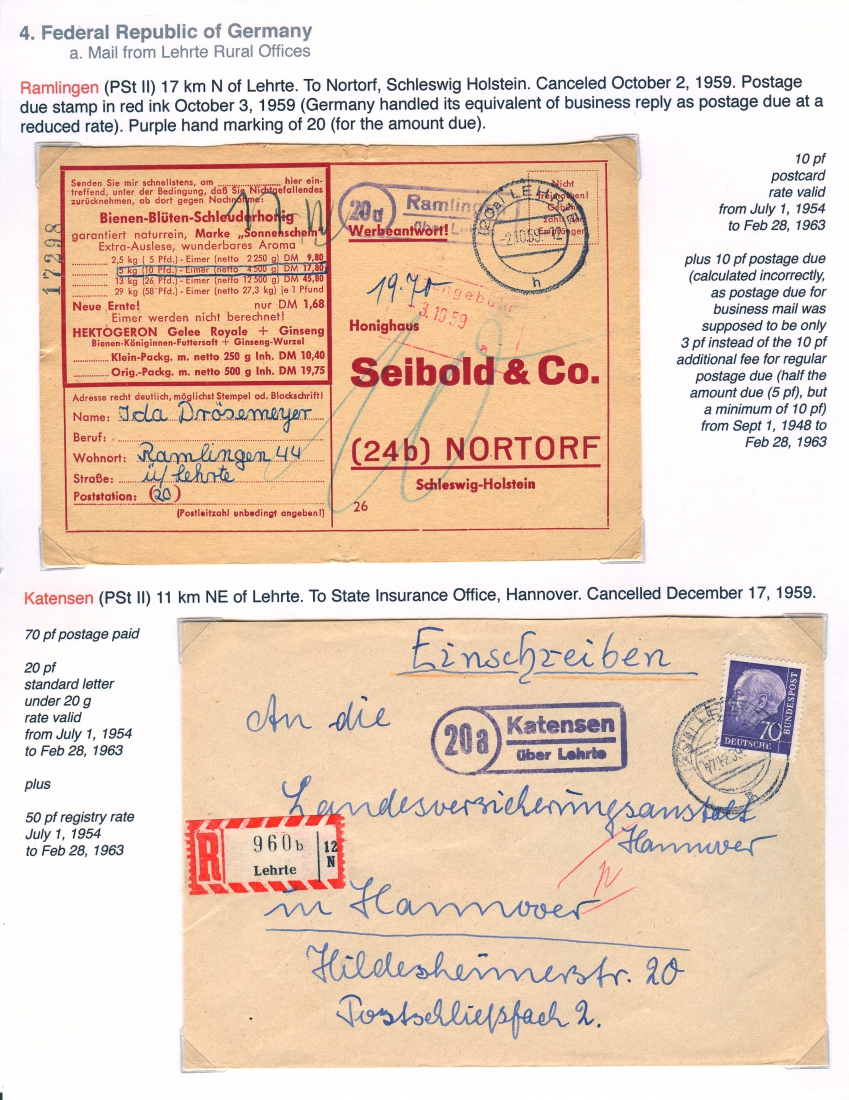 4. Federal Republic of Germany
a. Mail from Lehrte Rural Offices
Ramlingen (PSt II) 17 km N of Lehrte. To Nortorf, Schleswig Holstein. Canceled October 2, 1959. Postage
due stamp in red ink October 3, 1959 (Germany handled its equivalent of business reply as postage due at a
reduced rate). Purple hand marking of 20 (for the amount due).
10 pf
postcard
rate valid
from July 1, 1954
to Feb 28, 1963
plus 10 pf postage due
(calculated incorrectly,
as postage due for
business mail was
supposed to be only
3 pf instead of the 10 pf
additional fee for regular
postage due (half the
amount due (5 pf), but
a minimum of 10 pf)
from Sept 1, 1948 to
Feb 28, 1963
17298
Senden Sie mir schnellstens, am hier ein-
treffend, unter der Bedingung, daß Sie Nichtgefallendes
zurücknehmen, ab dort gegen Nachnahme:
Bienen-Blüten-Schleuderhonig
garantiert naturrein, Marke „Sonnenschein"
Extra-Auslese, wunderbares Aroma
2,5 kg ( 5 Pfd.) - Eimer (netto 2 250 g) DM 9,80
5 kg (10 Pfd.) - Eimer (netto 4 500 g) DM 17,80
13 kg (26 Pfd.) - Eimer (netto 12 500 g) DM 45,80
29 kg (58 Pfd.) - Eimer (netto 27,3 kg) je 1 Pfund
Neue Ernte! nur DM 1,68
Eimer werden nicht berechnet!
HEKTOGERON Gelee Royale + Ginseng
Bienen-Königinnen-Futtersaft + Ginseng-Wurzel
Klein-Packg. m. netto 250 g Inh. DM 10,40
Orig.-Packg. m. netto 500 g Inh. DM 19,75
Adresse recht deutlich, möglichst Stempel od. Blockschrift!
Name: Ida Drösemeyer
Beruf:
Wohnort: Ramlingen 44
Straße: ü/Lehrte
Poststation: (20)
(Postleitzahl unbedingt angeben!)
20a
Ramling
über Le
Werbeantwort!
(20a) LEHRTE
-2.10.59.-12
h
Nicht
19.70
3.10.59
a
Honighaus
Seibold & Co.
(24b) NORTORF
Schleswig-Holstein
26
Katensen (PSt II) 11 km NE of Lehrte. To State Insurance Office, Hannover. Cancelled December 17, 1959.
70 pf postage paid
20 pf
standard letter
under 20 g
rate valid
from July 1, 1954
to Feb 28, 1963
plus
50 pf registry rate
July 1, 1954
to Feb 28, 1963
Einschreiben
70
DEUTSCHE
BUNDESPOST
(20a) LEHRTE
h
An die
20a
Katensen
über Lehrte
Landesversicherungsanstalt
Hannover
R
960b
Lehrte
12
N
in Hannover
Hildesheimerstr. 20
Postschließfach 2.